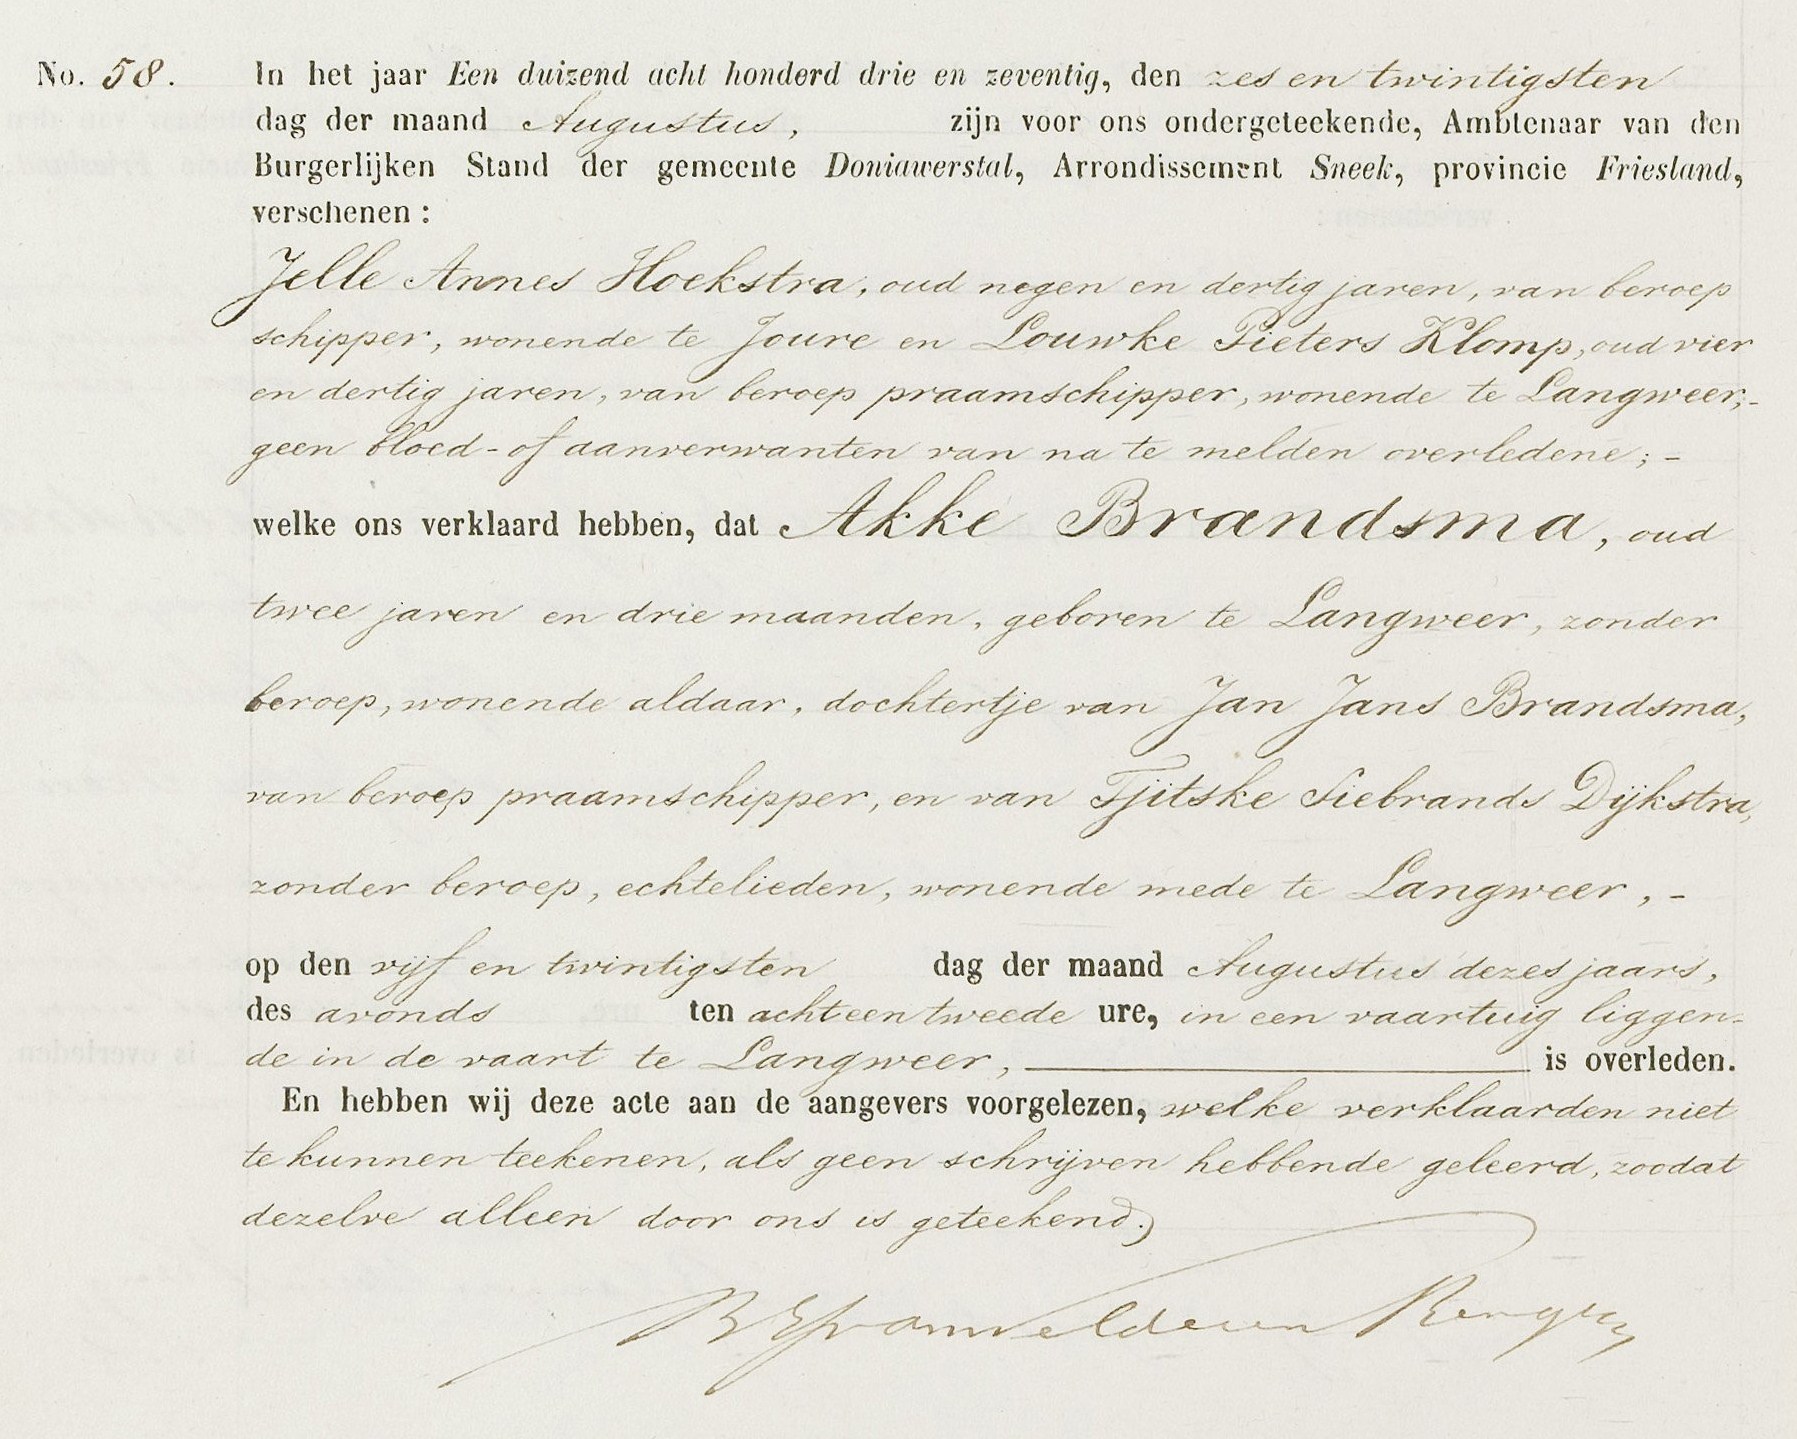 No. 58. In het jaar Een duizend acht honderd drie en zeventig, den zes en twintigsten
dag der maand Augustus, zijn voor ons ondergeteekende, Ambtenaar van den
Burgerlijken Stand der gemeente Doniawerstal, Arrondissement Sneek, provincie Friesland,
verschenen:
Jelle Annes Hoekstra, oud negen en dertig jaren, van beroep
schipper, wonende te Joure en Louwke Pieters Klomp, oud vier
en dertig jaren, van beroep praamschipper, wonende te Langweer,-
geen bloed- of aanverwanten van na te melden overledene;-
welke ons verklaard hebben, dat Akke Brandsma, oud
twee jaren en drie maanden, geboren te Langweer, zonder
beroep, wonende aldaar, dochtertje van Jan Jans Brandsma,
van beroep praamschipper, en van Tjitske Siebrands Dijkstra,
zonder beroep, echtelieden, wonende mede te Langweer,-
op den vijf en twintigsten dag der maand Augustus dezes jaars,
des avonds ten acht een tweede ure, in een vaartuig liggen-
de in de vaart te Langweer, is overleden.
En hebben wij deze acte aan de aangevers voorgelezen, welke verklaarden niet
te kunnen teekenen, als geen schrijven hebbende geleerd, zoodat
dezelve alleen door ons is geteekend.